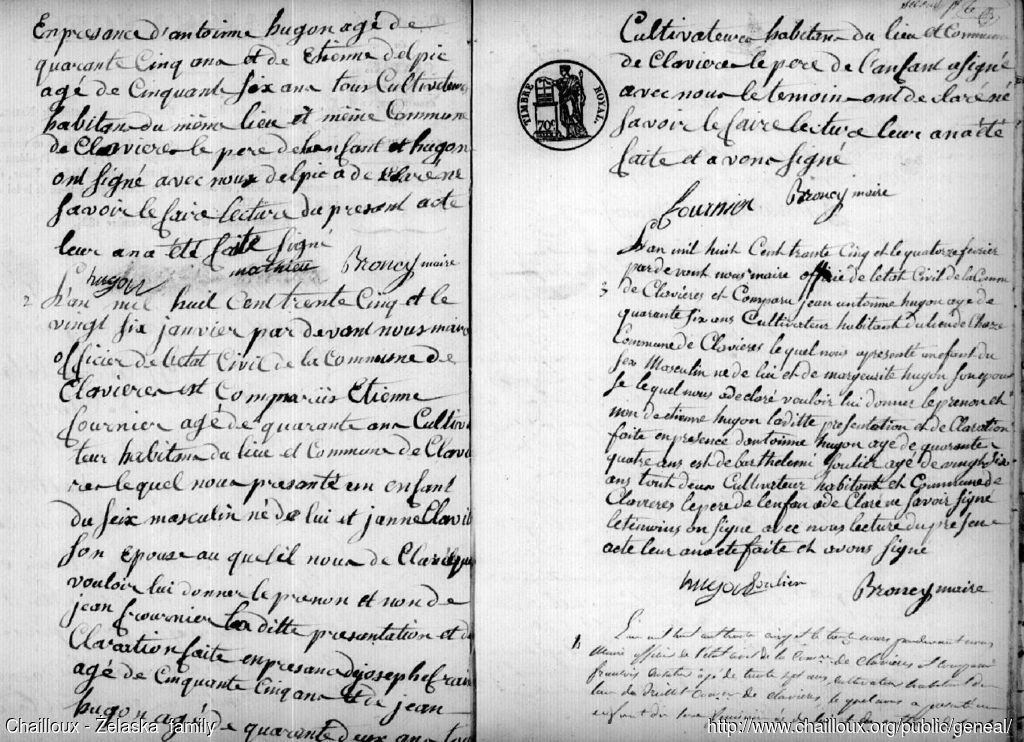 En presance d'antoinne hugon agé de
quarante Cinq ans et de Etienne delpic
agé de Cinquante six ans tous Cultivateurs
habitans du même lieu et même Commune
de Clavieres le pere de lenfant et hugon
ont signé avec nous delpic a de claré ne
savoir le faire lecture du presant acte
leur ana été faite signé
hugon mathieu Broncy maire
2 L'an mil huit Cent trente Cinq et le
vingt six janvier par devant nous maire
officier de letat Civil de la Commune de
Clavieres est Comparüs Etienne
fournier agé de quarante ans Cultiva
teur habitans du lieu et Commune de Clavie
res lequel nous presanté un enfant
du seix masculin né de lui et janne Clavil
son Epouse au quel il nous de Claré
vouloir lui donner le prenon et non de
jean fournier la ditte presentation et de
Claration faite en presance de joseph
agé de Cinquante Cinq ans et de jean
hugon agé de quarante deux ans tous
Cultivateurs habitans du lieu et Commune
de Clavieres le pere de l'anfant a signé
avec nous le temoin ont de claré ne
savoir le faire lecture leur ana été
faite et avons signé
TIMBRE ROYAL
70c
fournier Broncy maire
L'an mil huit Cent trante Cinq et le quatorze fevrier
par de vent nous maire officie de letat Civil de la Comm
3 de Clavières et Comparu jean antoinne hugon age de
quarante six ans Cultivateur habitant du lieu de
Commune de Clavieres le quel nous apresenté un efant du
sex Masculin ne de lui et de margeusite hugon son epou
se le quel nous a declaré vouloir lui donner le prenon et
non de etienne hugon la ditte presentation et de Claration
faite en presence dantoinne hugon age de quarante
quatre ans est de barthelemi Soulier age de
ans tout deux Cultivateur habitant et Commune de
Clavieres le pere de lenfan a de Clare ne savoir signe
le temoins on signe avec nous lecture du presene
acte leur ana ete faite et avons signe
hugon Soulier Broncy maire
4 L'an mil huit cent trente cinq et le trente mars pardevant nous
maire officier de l'etat civil de la Comne de clavieres est comparu
françois age de trente sept ans cultivateur habitant du
lieu du Comne de clavieres, le quel nous a presenté un
enfant du sexe
Chailloux - Zelaska family
http://www.chailloux.org/public/geneal/